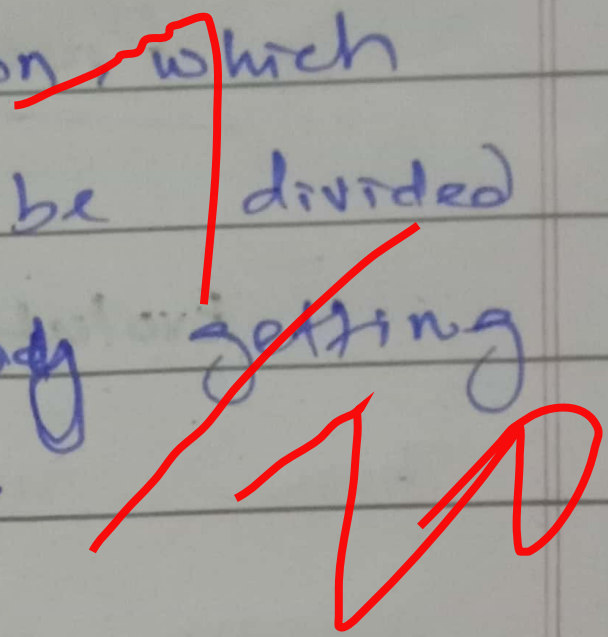 on, which
be divided
getting
1/10